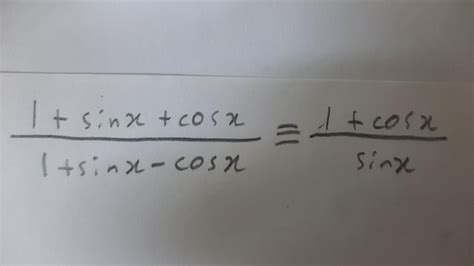 1 + sinx + cosx / 1 + sinx - cosx ≡ 1 + cosx / sinx